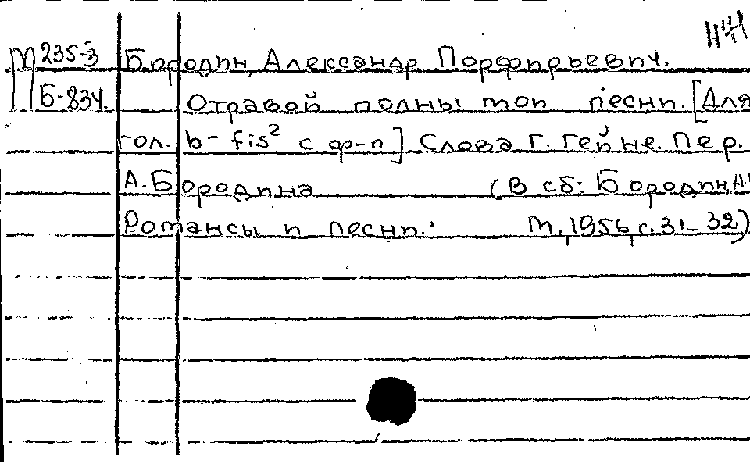 М 235-3 Бородин, Александр Порфирьевич.
Б-834. Отравой полны мои песни. [Для
гол. b - fis² с ф-п] Слова Г. Гейне. Пер.
А. Бородина (В сб: Бородин А.
Романсы и песни. М, 1956, с. 31-32)